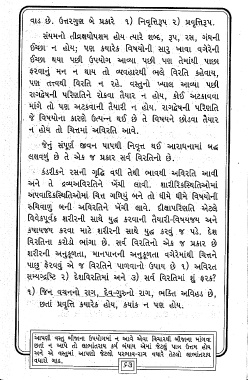 વાડ છે. ઉત્તરગુણ બે પ્રકારે ૧) નિવૃત્તિરૂપ ૨) પ્રવૃત્તિરૂપ.
સંયમનો તીવ્રક્ષયોપશમ હોય ત્યારે શબ્દ, રૂપ, રસ, ગંધની
ઈચ્છા ન હોય; પણ ક્યારેક વિષયોની સાડુ ખાવા વગેરેની
ઈચ્છા થયા પછી ઉપયોગ આવ્યા પછી પણ તેમાંથી પાછા
ફરવાનું મન ન થાય તો વ્યવહારથી ભલે વિરતિ કહેવાય,
પણ તત્ત્વથી વિરતિ ન રહે. વસ્તુનો ખ્યાલ આવ્યા પછી
રાગદ્વેષની પરિણતિને રોકવા તૈયાર ન હોય, કોઈ અટકાવવા
માંગે તો પણ અટકાવાની તૈયારી ન હોય. રાગદ્વેષની પરિણતિ
જે વિષયોના કારણે ઉત્પન્ન થઈ છે તે વિષયને છોડવા તૈયાર
ન હોય તો ચિત્તમાં અવિરતિ આવે.
જેનું સંપૂર્ણ જીવન પાપથી નિવૃત્ત થઈ આરાધનામાં બદ્ધ
લક્ષવણું છે તે એક જ પ્રકાર સર્વ વિરતિનો છે.
કંડરીકને રસની ગૃદ્ધિ વધી તેથી ભાવથી અવિરતિ આવી
અને તે દ્રવ્યઅવિરતિને ખેંચી લાવી. શારીરિકસ્થિતિઓમાં
અપવાદિકસ્થિતિઓમાં ચિત્ત ગયિલું બને તો ધીમે ધીમે વિષયોની
રુચિવાળું બની અવિરતિને ખેંચી લાવે. દીક્ષાપરિણતિ એટલે
વિવેકપૂર્વક શરીરની સાથે યુદ્ધ કરવાની તૈયારી-વિષયજય અને
કષાયજય કરવા માટે શરીરની સાથે યુદ્ધ કરવું જ પડે. દેશ
વિરતિના કરોડો ભાંગા છે. સર્વ વિરતિનો એક જ પ્રકાર છે
શરીરની અનુકૂળતા, માનપાનની અનુકૂળતા વગેરેમાંથી ચિત્તને
પાછુ ફેરવવું એ જ વિરતિને પાળવાનો ઉપાય છે ૧) અવિરત
સમ્યગ્દ્રષ્ટિ ૨) દેશવિરતિમાં અને ૩) સર્વ વિરતિમાં શું ફરક?
૧) જિન વચનનો રાગ, દેવ-ગુરુનો રાગ, ભક્તિ અવિહડ છે,
છતાં પ્રવૃત્તિ ક્યારેક હોય, ક્યાંક ન પણ હોય.
આપણી વસ્તુ બીજાના ઉપયોગમાં ન આવે એવા વિચારથી બીજાના માંગવા
છતાં ન આપે તો લાભાંતરાય કર્મ બંધાય એમાં જેટલું પાપ ઉત્તમ હોય
અને એ વસ્તુમાં આપણો જેટલો પરભાવ-રાગ વધારે તેટલો લાભાંતરાય
વધારે ગાઢ.